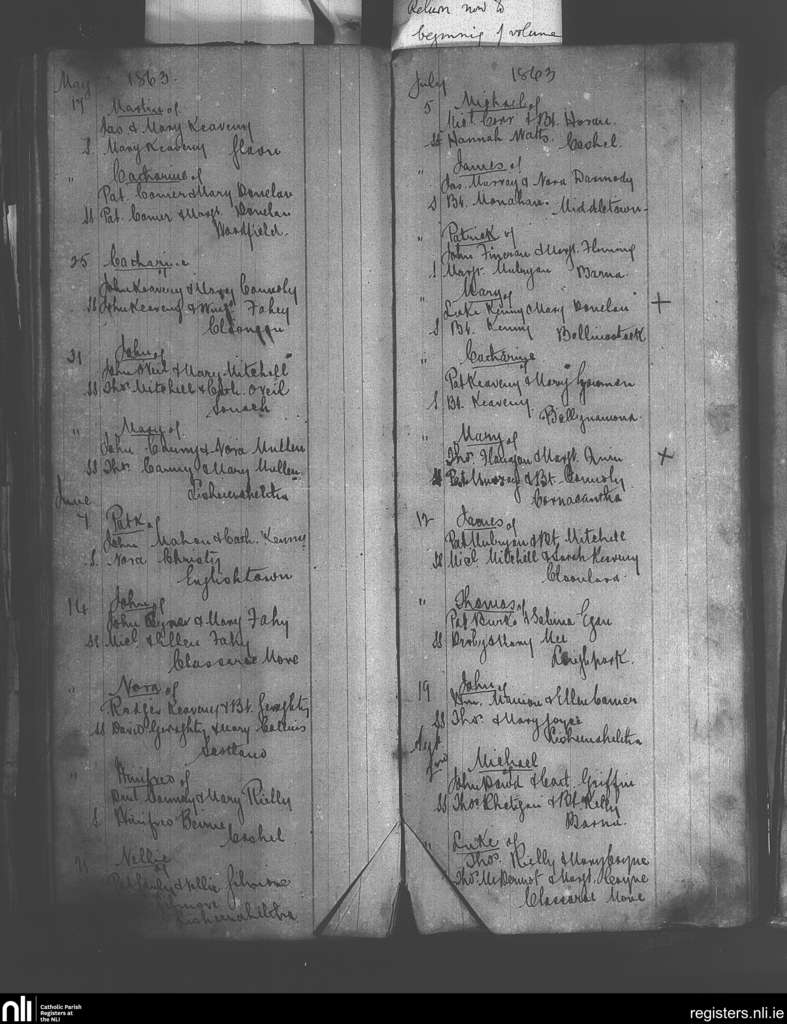 Return now to
beginning of volume
May 1863.
17 Martin of
Jas & Mary Keaveny
S Mary Keaveny
" Catharine of
Pat. Comer & Mary Donelan
SS Pat. Comer & Margt. Donelan
Woodfield.
25 Catharine
of
John Keaveny & Mary Connoly
SS John Keaveny & Winif. Fahey
Cloongou
31 John of
John O'Neil & Mary Mitchell
SS Thos. Mitchell & Cath. O'Neil
" Mary of
John Canny & Nora Mullen
SS Thos. Canny & Mary Mullen
Lisheenaheltra
June
7 Patk of
John Mahon & Cath. Kenny
S. Nora Christy
Englishtown
14 John of
John & Mary Fahy
SS Micl. & Ellen Fahy
Classaroe More
" Nora of
Rodger Keaveny & Bt. Geraghty
SS David Geraghty & Mary Collins
Scotland
" Winifred of
& Mary Rielly
S Winifred Beirne
Cashel
21 Nellie
of
Lisheenaheltra
July 1863
5 Michael of
Micl. Carr & Bt. Horan.
SS Hannah Watts. Cashel.
" James of
Jas. Murray & Nora Darmody
S Bt. Monahan. Middletown
" Patrick of
John Fineran & Margt. Fleming
S Margt. Mulryan Barna.
" Mary of
Luke Kenny & Mary Donelan +
S Bt. Kenny
" Catharine
of
Pat Keaveny & Mary
S Bt. Keaveny
Ballynamona.
" Mary of
Thos. Flanagan & Margt. Quin +
SS Pat. Murray & Bt. Connoly
Cornacartha
12 James of
Pat Mulryan & Bt. Mitchell
SS Micl. Mitchell & Sarah Keaveny
" Thomas of
Pat Burke & Sabina Egan
SS Darby & Mary Mee
Loughpark.
19 John of
Wm. Mannion & Ellen Comer
SS Thos. & Mary Joyce
Lisheenaheltra
Michael
John David & Cat. Griffin
SS Thos. Rhatigan & Bt. Kelly
Barna.
" Luke of
Thos. Rielly & Mary Coyne
Thos. McDermot & Margt. Coyne
Classaroe More
nli
Catholic Parish
Registers at
the NLI
registers.nli.ie